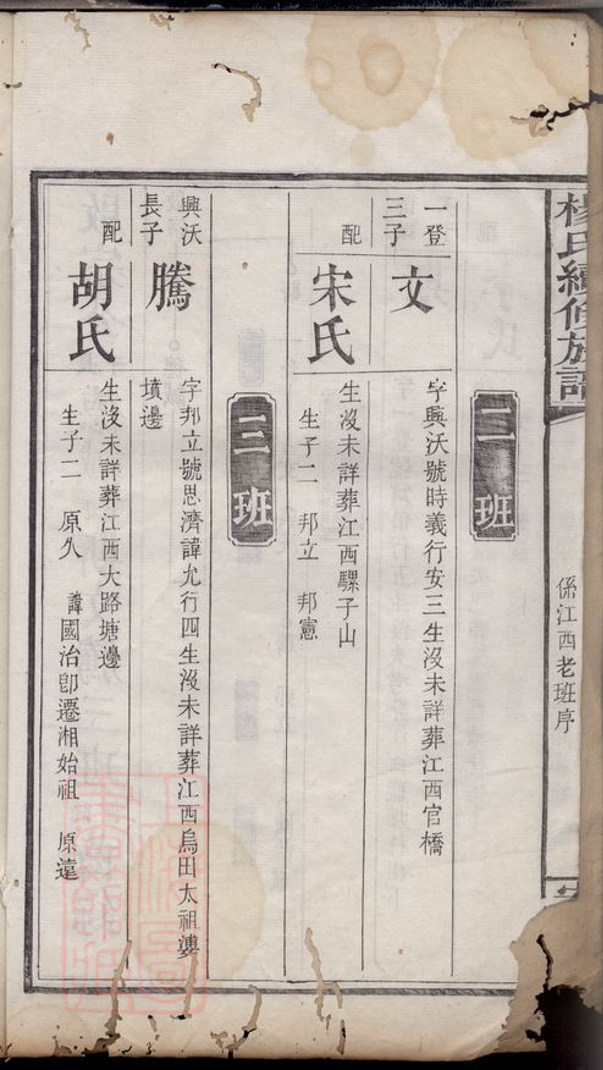 楊氏續修族譜
係江西老班序
二班
一登
三子
文
字興沃號時義行安三生沒未詳葬江西官橋
配
宋氏
生沒未詳葬江西騾子山
生子二 邦立 邦憲
三班
興沃
長子
騰
字邦立號思濟諱允行四生沒未詳葬江西烏田太祖婆
墳邊
配
胡氏
生沒未詳葬江西大路塘邊
生子二 原久 諱國治卽遷湘始祖 原遠